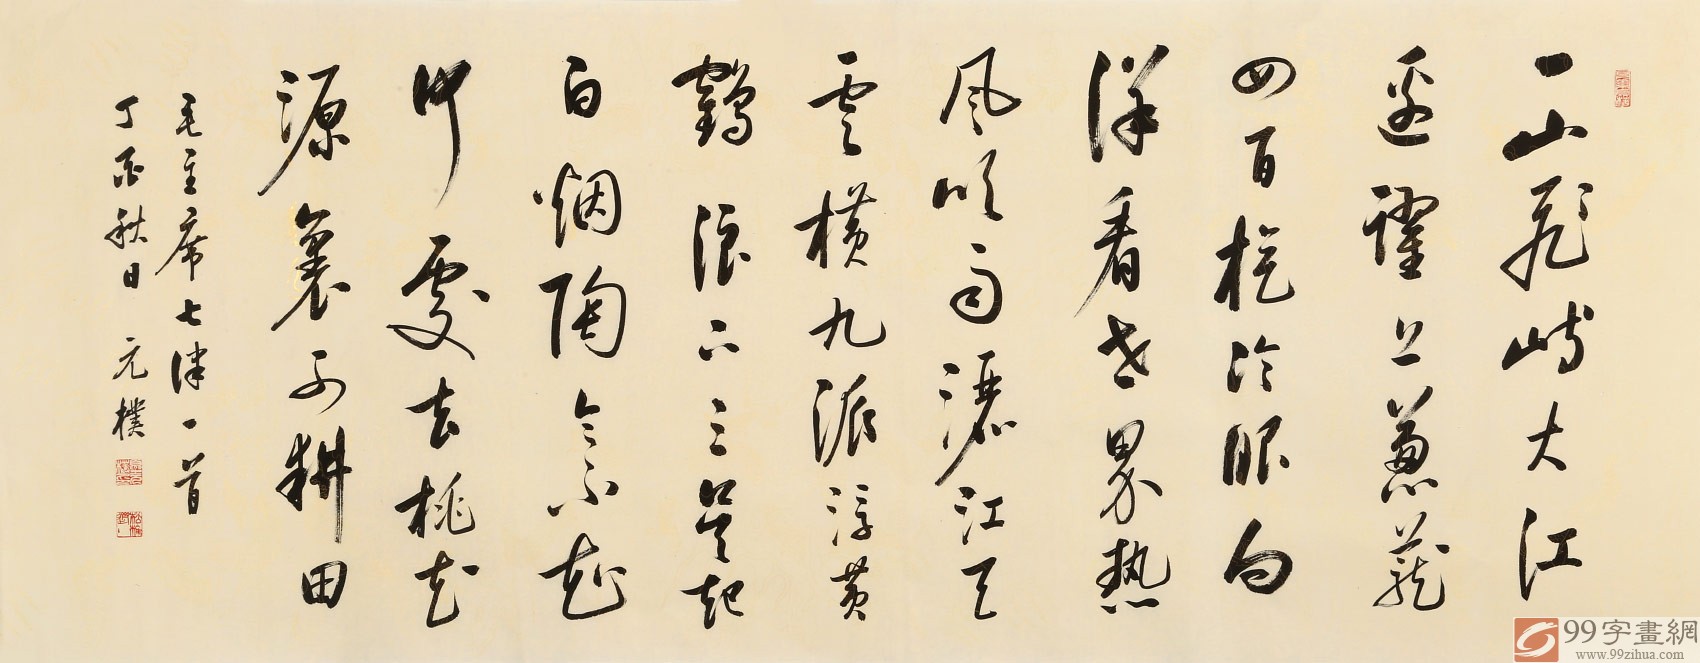 一山飛峙大江
邊躍上葱蘢
四百旋冷眼向
洋看世界熱
風吹雨灑江天
雲横九派浮黄
鶴浪下三吴起
白烟陶令不知
何處去桃花
源裏可耕田
毛主席七律一首
丁酉秋日 元樸
99字畫網
www.99zihua.com